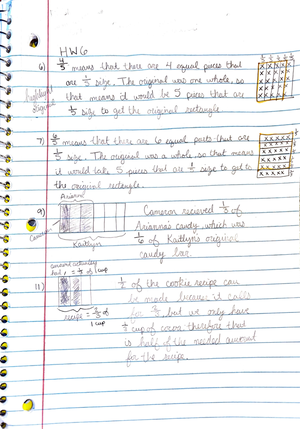 HW6
6) 4/5 means that there are 4 equal pieces that
are 1/5 size. The original was one whole, so
that means it would be 5 pieces that are
1/5 size to get the original rectangle.
7) 6/5 means that there are 6 equal parts that are
1/5 size. The original was a whole, so that means
it would take 5 pieces that are 1/5 size to get to
the original rectangle.
Arianna
9)
Cameron
Kaitlyn
Cameron recieved 1/5 of
Arianna's candy, which was
of Kaitlyn's original
candy bar.
11)
recipe = 2/3 of
1 cup
1/2 of the cookie recipe can
be made because it calls
for 2/3 but we only have
1/3 cup of cocoa therefore that
is half of the needed amount
for the recipe.